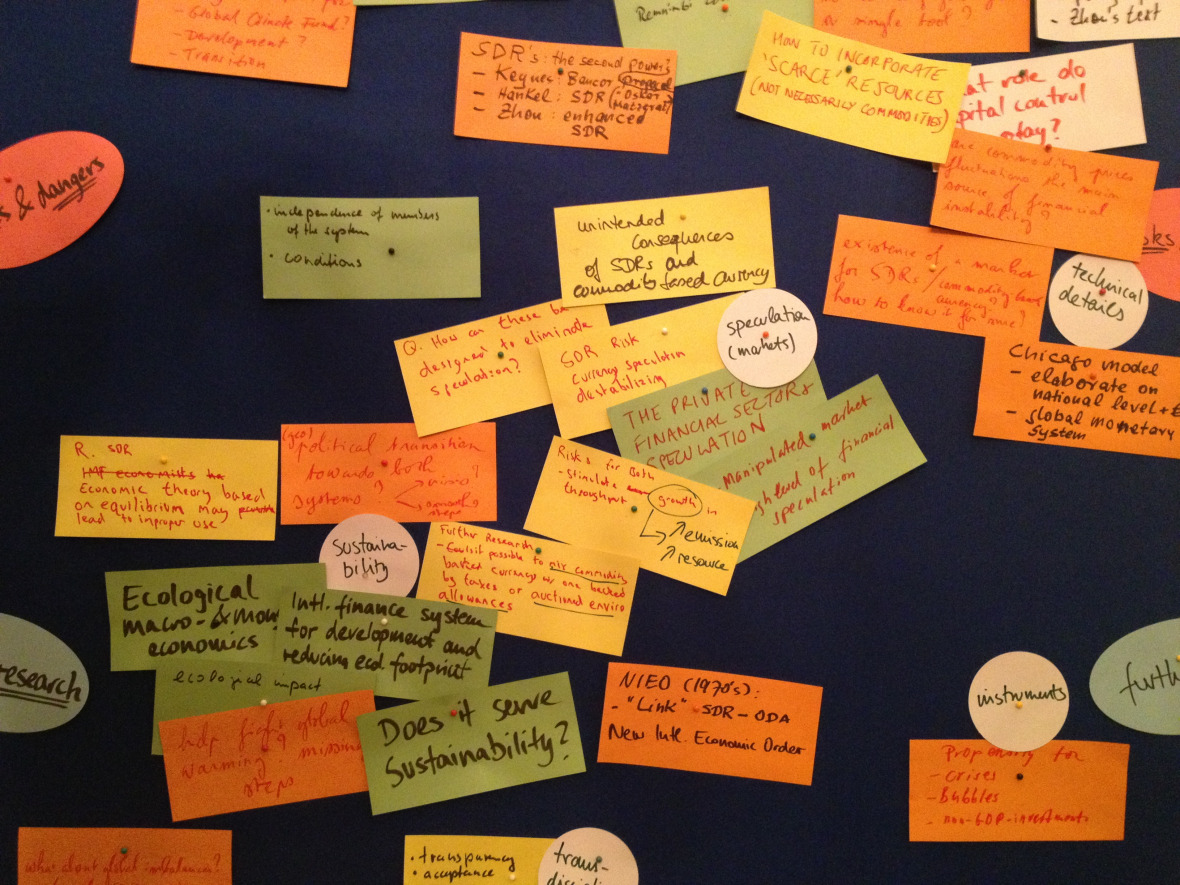 - Global Climate Fund?
- Development?
- Transition
SDR's: the second powers?
- Keynes: Bancor proposal
- Hankel: SDR ("Oskar
Matzerat")
- Zhou: enhanced
SDR
Renminbi
or single tool?
- Zhou's text
HOW TO INCORPORATE
'SCARCE' RESOURCES
(NOT NECESSARILY COMMODITIES)
at role do
pital control
play?
are commodity prices
fluctuations the main
source of financial
instability?
& dangers
• independence of members
of the system
• conditions
unintended
consequences
of SDRs and
commodity based currency
existence of a market
for SDRs / commodity based
currency?
how to know it for sure?
technical
details
sks
Q. How can these be
designed to eliminate
speculation?
SDR Risk
currency speculation
destabilizing
speculation
(markets)
THE PRIVATE
FINANCIAL SECTORS
SPECULATION
- Manipulated market
instead of financial
speculation
Chicago model
- elaborate on
national level + E
- global monetary
system
R. SDR
IMF economists
Economic theory based
on equilibrium may
lead to improper use
(geo)
political transition
towards both
systems?
micro
?
smooth
steps
Risks for Both
- Stimulate growth in
throughput
↗ emission
↗ resource
sustaina-
bility
Further Research
- Could it possible to mix commodity
backed currency w/ one backed
by taxes or auctioned enviro
allowances
Ecological
macro- & mon
economics
Intl. finance system
for development and
reducing ecol footprint
ecological impact
help fight global
warming? missing
steps
Does it serve
Sustainability?
NIEO (1970's):
- "Link" SDR - ODA
New Intl. Economic Order
research
instruments
furth
Propensity for
- crises
- Bubbles
- non-GDP-investments
what about global imbalances?
• transparency
• acceptance
trans-